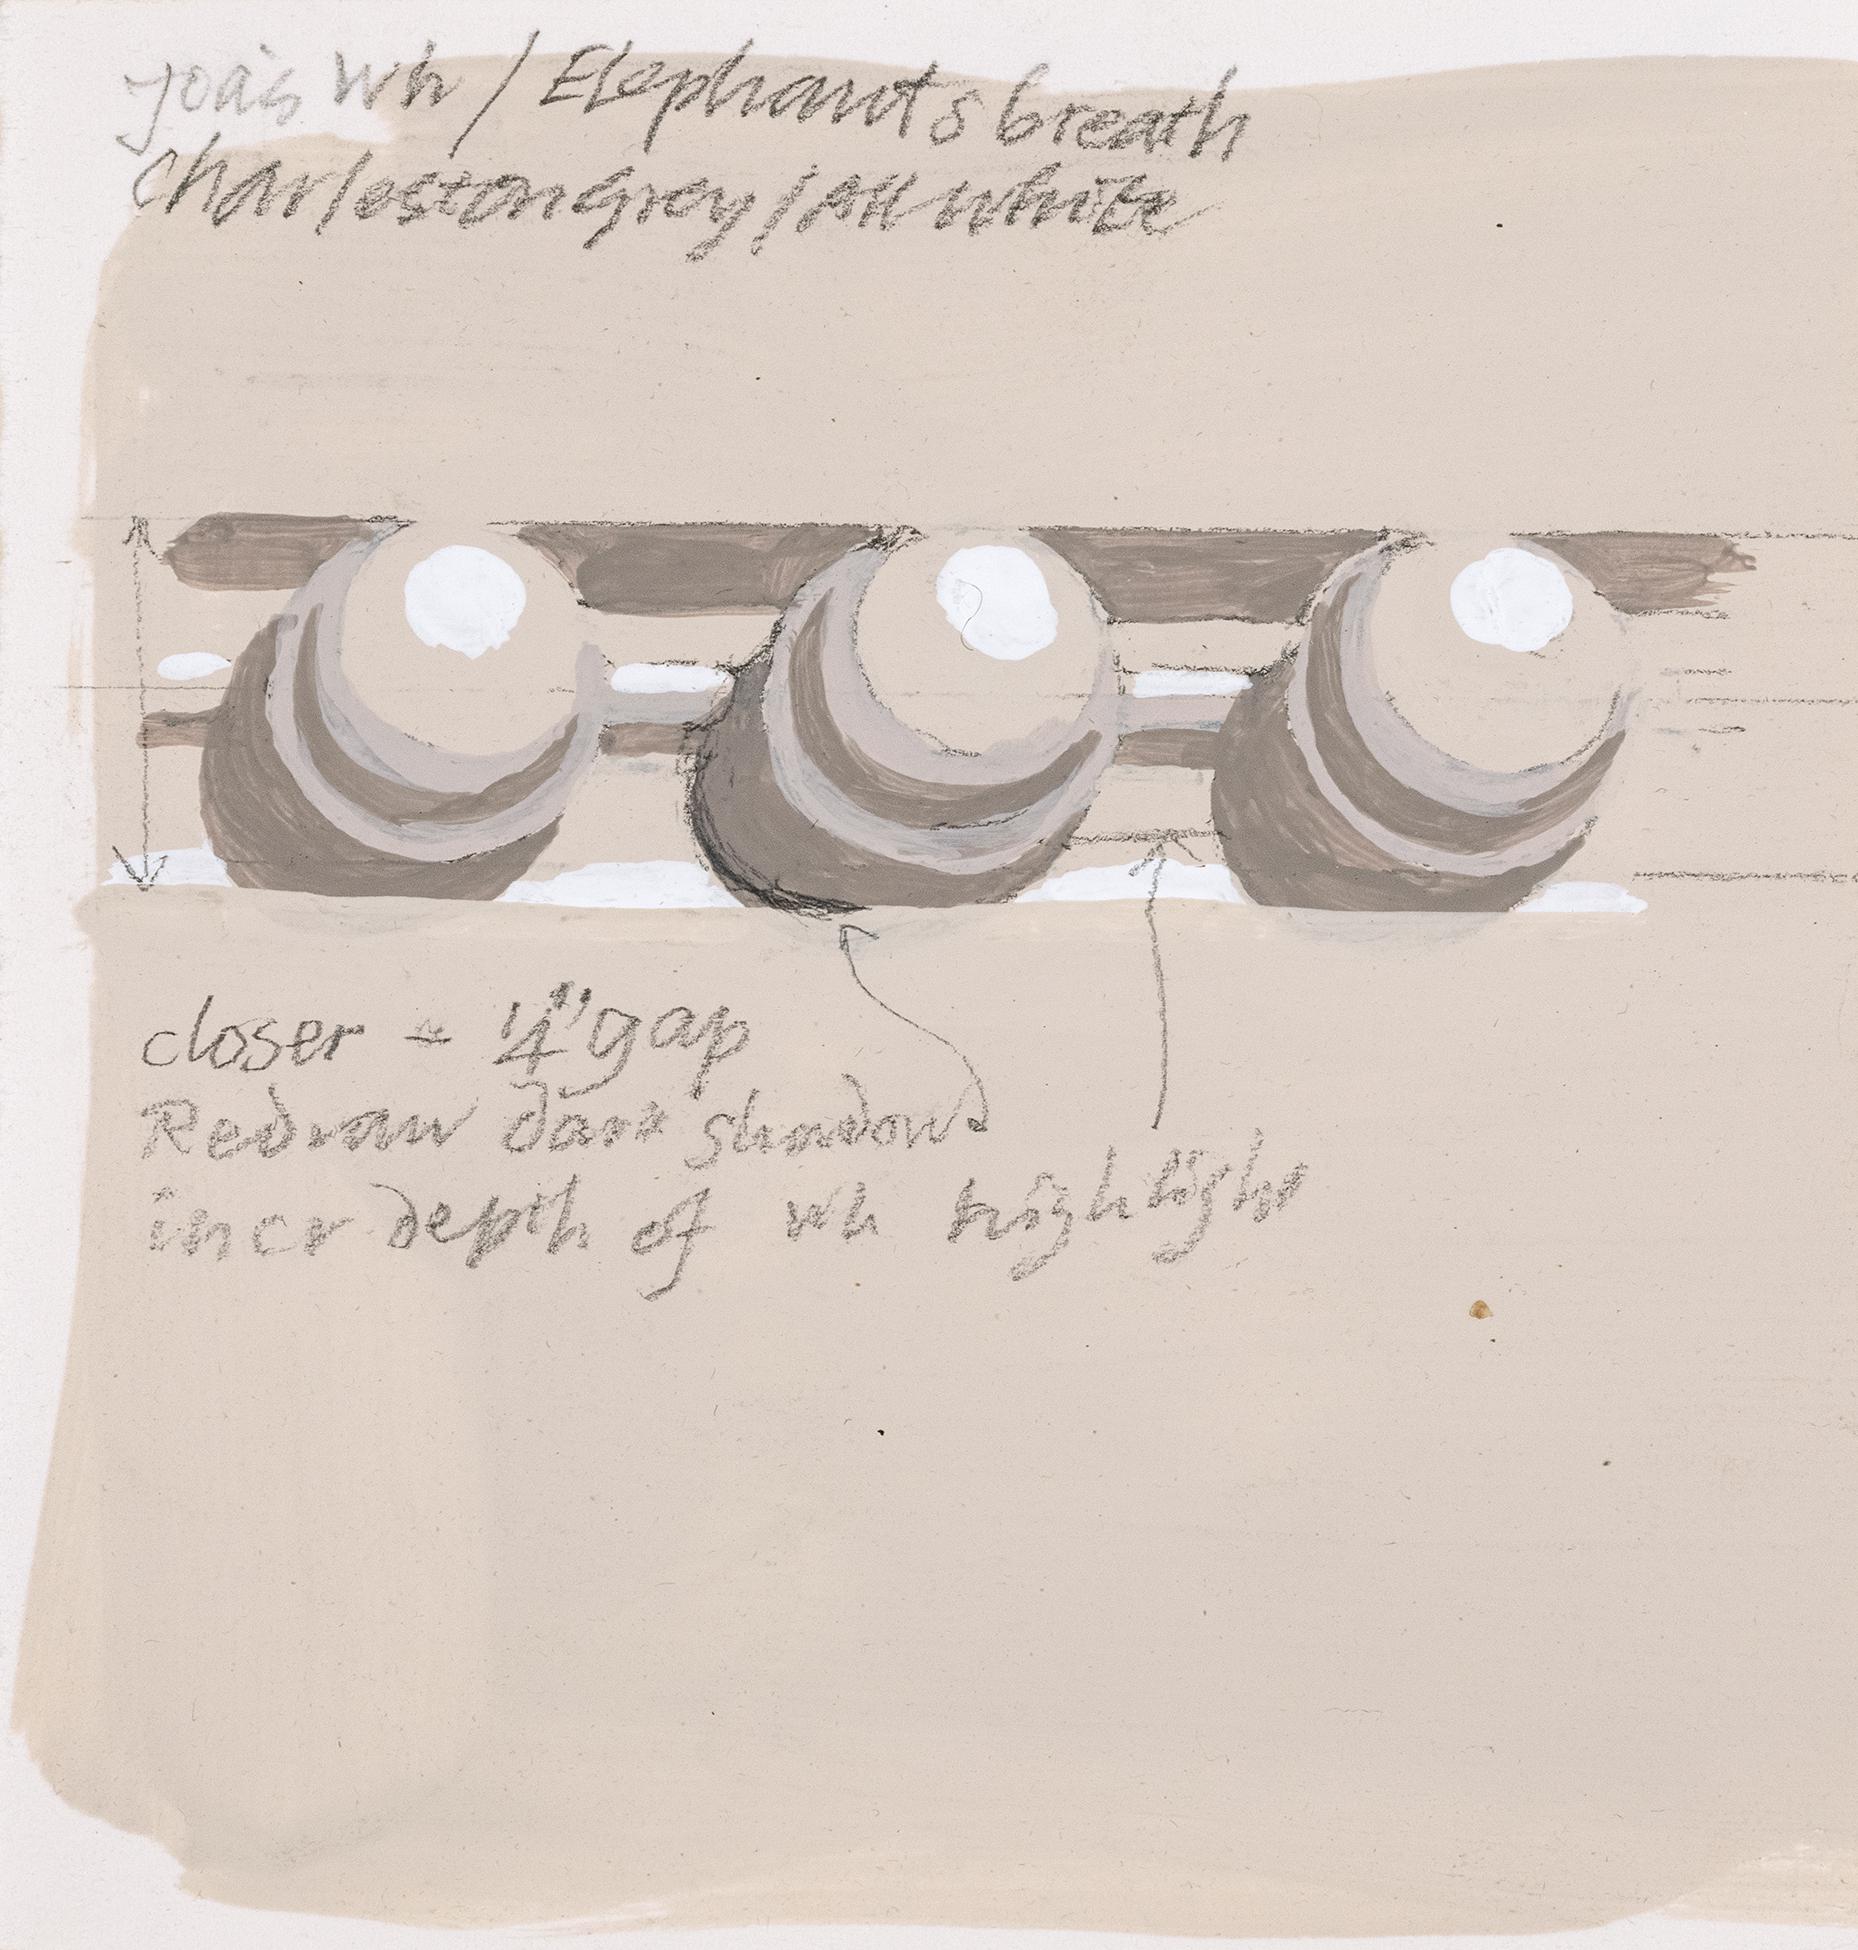 Joa's Wh / Elephants breath
Charleston Grey / All white
closer - 1/4" gap
Redraw dark shadow
incr depth of wh highlight